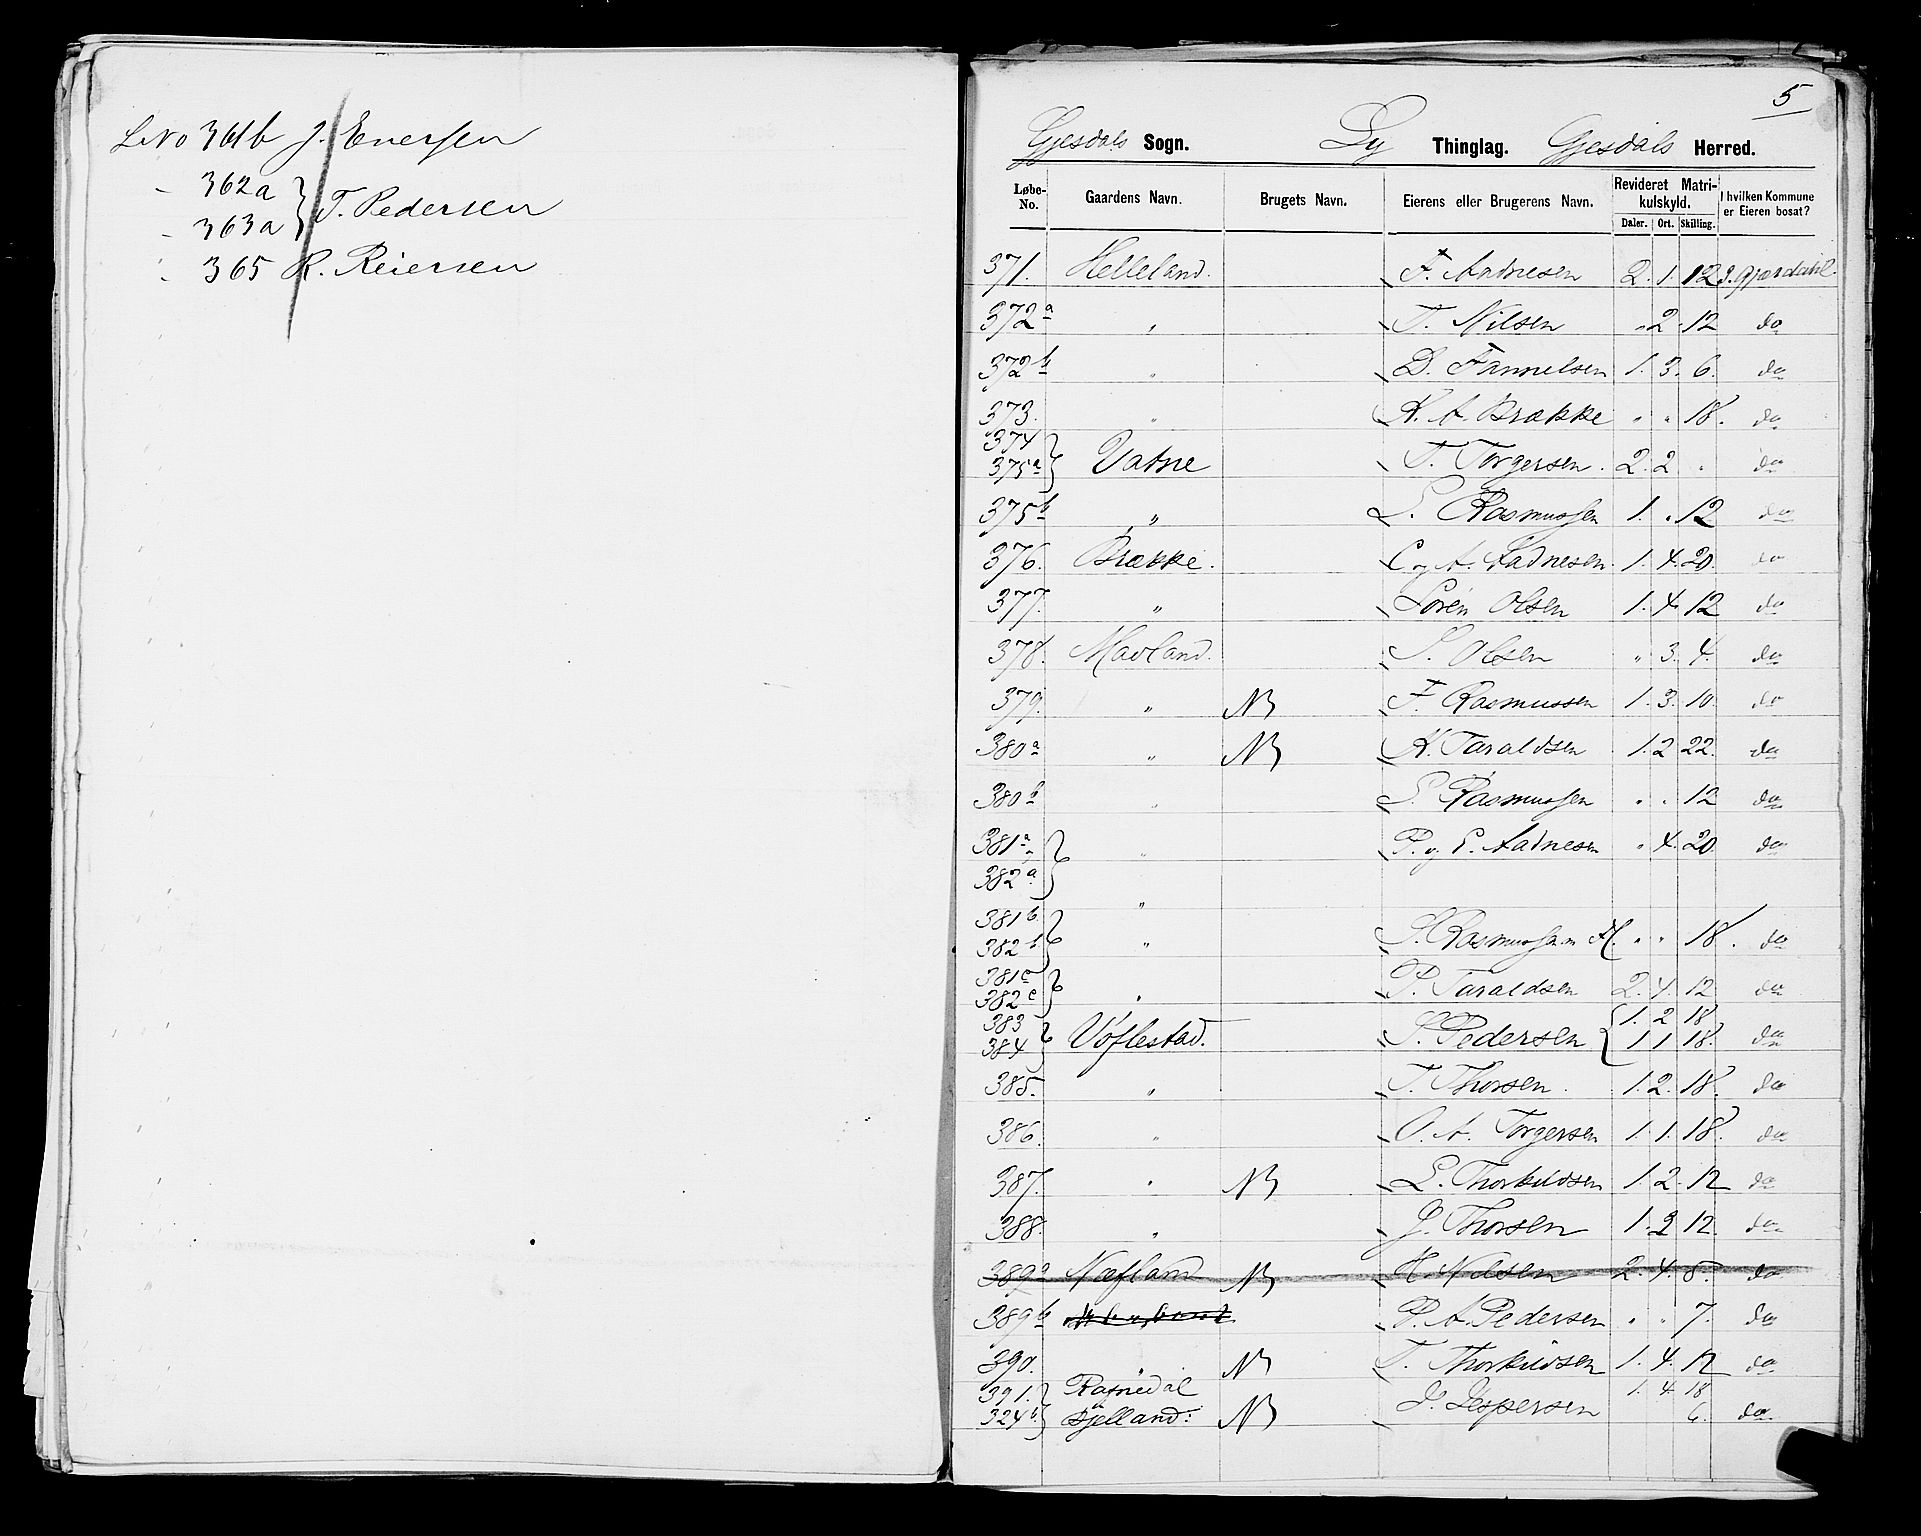 LNo 361b J. Enersen
" 362a
" 363a } T. Pedersen
" 365 R. Reiersen
5
Gjesdals Sogn. Ly Thinglag. Gjesdals Herred.
Løbe-No. Gaardens Navn. Brugets Navn. Eierens eller Brugerens Navn. Revideret Matrikulskyld. I hvilken Kommune er Eieren bosat?
Daler. Ort. Skilling.
371. Helleland. F. Aadnesen 2. 1. 12 i Gjæsdahl.
372a " T. Nilsen " 2 12 do
372b " D. 1. 3. 6. do
373. " K. A. Brække " " 18. do
374
375a } Vatne T. Torgersen. 2. 2 " do
375b " S. Rasmussen 1. " 12 do
376. Brække. C og A. Aadnesen 1. 4. 20. do
377. " Sören Olsen 1. 4. 12 do
378. Mavland. S. Olsen " 3. 4. do
379. " NB F. Rasmussen 1. 3. 10. do
380a " NB K. Taraldsen 1. 2 22. do
380b " S. Rasmussen " " 12 do
381a } " P. og E. Aadnesen " 4. 20. do
382a "
381b
382b } " S. Rasmussen H. " " 18. do
381c
382c } " P. Taraldsen 2. 4. 12 do
383 1. 2 18
384 } Vöflestad. S. Pedersen { 1 1 18. do
385. " T. Thorsen. 1. 2. 18. do
386. " O. A. Torgersen 1. 1. 18. do
387. " NB L. Thorkildsen 1. 2. 12 do
388. " J. Thorsen 1. 2 12. do
389a Næfland NB H. Nilsen 2. 4. 8. do
389b P. A. Pedersen " " 7. do
390. NB T. Thorkildsen 1. 4. 12 do
391. Ravnedal 1. 4. 18
324b } Fjelland: NB J. Jespersen 6. do.